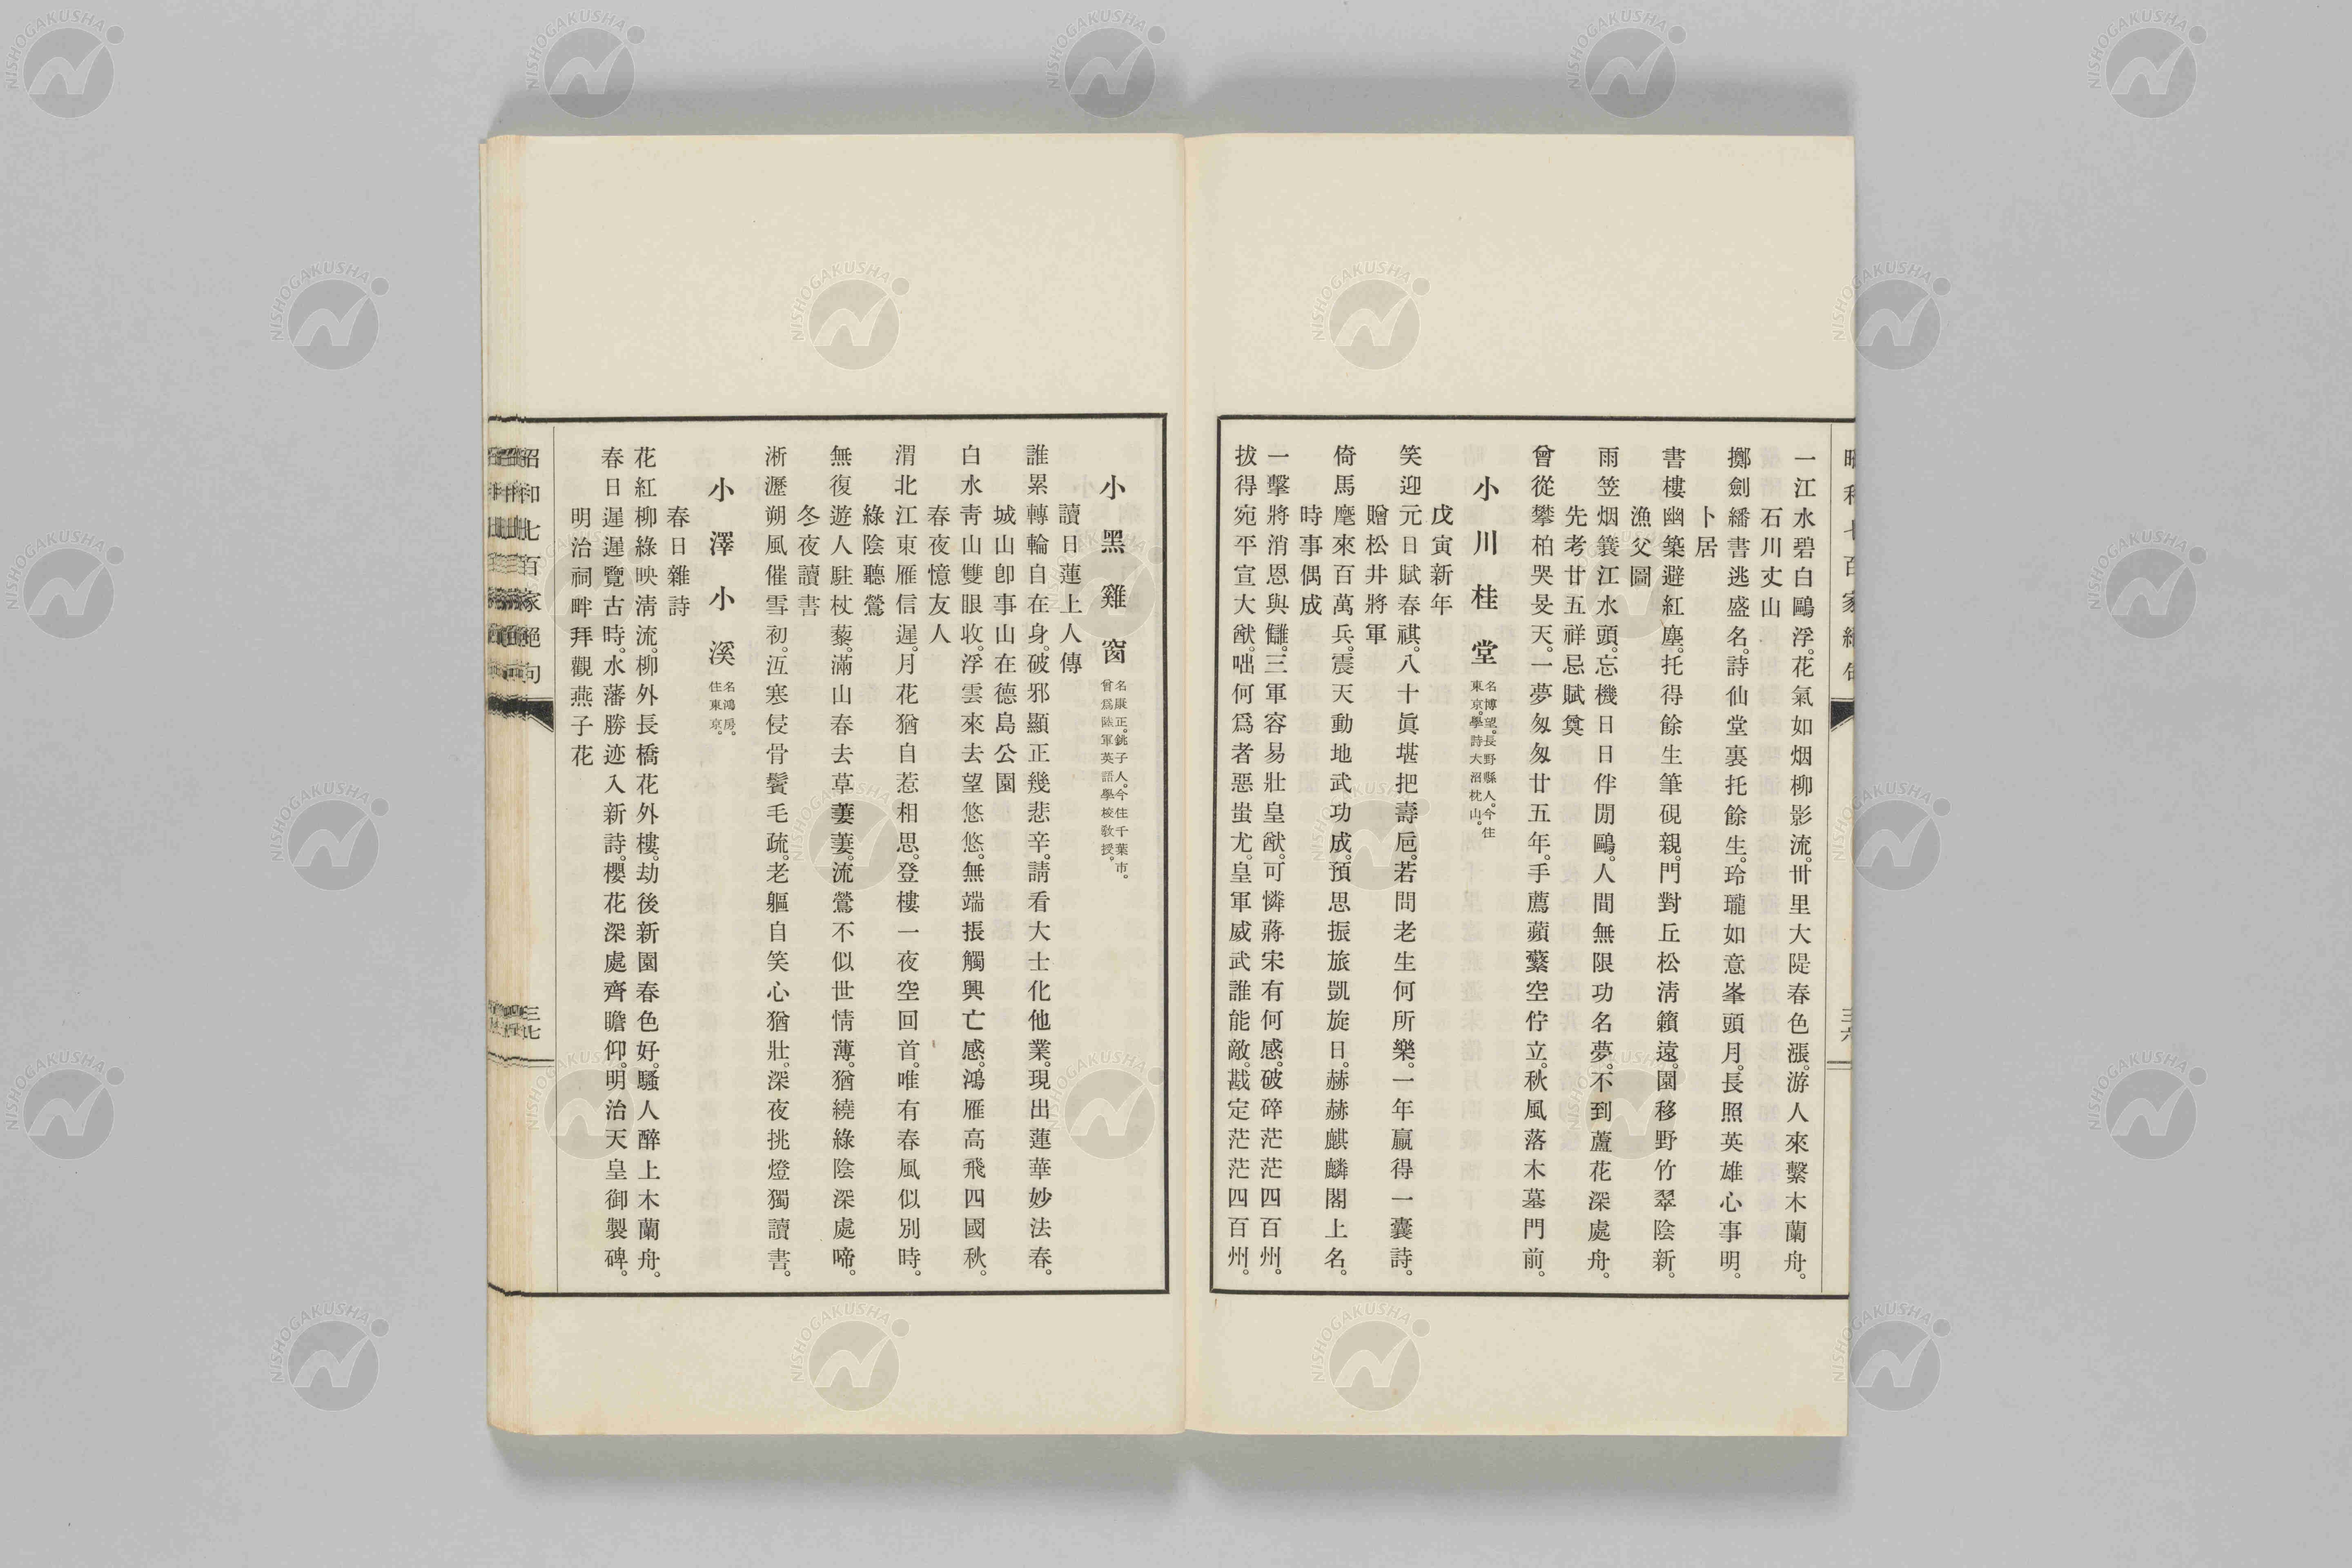 昭和七百家絶句
三六
一江水碧白鷗浮。花氣如烟柳影流。丗里大隄春色漲。游人來繫木蘭舟。
石川丈山
擲劍繙書逃盛名。詩仙堂裏托餘生。玲瓏如意峯頭月。長照英雄心事明。
卜居
書樓幽築避紅塵。托得餘生筆硯親。門對丘松淸籟遠。園移野竹翠陰新。
漁父圖
雨笠烟簑江水頭。忘機日日伴閒鷗。人間無限功名夢。不到蘆花深處舟。
先考廿五祥忌賦奠
曾從攀柏哭旻天。一夢匆匆廿五年。手薦蘋蘩空佇立。秋風落木墓門前。
小川桂堂
名博望。長野縣人。今住
東京。學詩大沼枕山。
戊寅新年
笑迎元日賦春祺。八十眞堪把壽巵。若問老生何所樂。一年贏得一囊詩。
贈松井將軍
倚馬麾來百萬兵。震天動地武功成。預思振旅凱旋日。赫赫麒麟閣上名。
時事偶成
一擊將消恩與讎。三軍容易壯皇猷。可憐蔣宋有何感。破碎茫茫四百州。
拔得宛平宣大猷。咄何爲者惡蚩尤。皇軍威武誰能敵。戡定茫茫四百州。
小黑雞窗
名康正。銚子人。今住千葉市。
曾爲陸軍英語學校敎授。
讀日蓮上人傳
誰累轉輪自在身。破邪顯正幾悲辛。請看大士化他業。現出蓮華妙法春。
城山卽事山在德島公園
白水靑山雙眼收。浮雲來去望悠悠。無端振觸興亡感。鴻雁高飛四國秋。
春夜憶友人
渭北江東雁信遲。月花猶自惹相思。登樓一夜空回首。唯有春風似別時。
綠陰聽鶯
無復遊人駐杖藜。滿山春去草萋萋。流鶯不似世情薄。猶繞綠陰深處啼。
冬夜讀書
淅瀝朔風催雪初。冱寒侵骨鬢毛疏。老軀自笑心猶壯。深夜挑燈獨讀書。
小澤小溪
名鴻房。
住東京。
春日雜詩
花紅柳綠映淸流。柳外長橋花外樓。劫後新園春色好。騷人醉上木蘭舟。
春日遲遲覽古時。水藩勝迹入新詩。櫻花深處齊瞻仰。明治天皇御製碑。
明治祠畔拜觀燕子花
昭和七百家絶句
三七
NISHOGAKUSHA